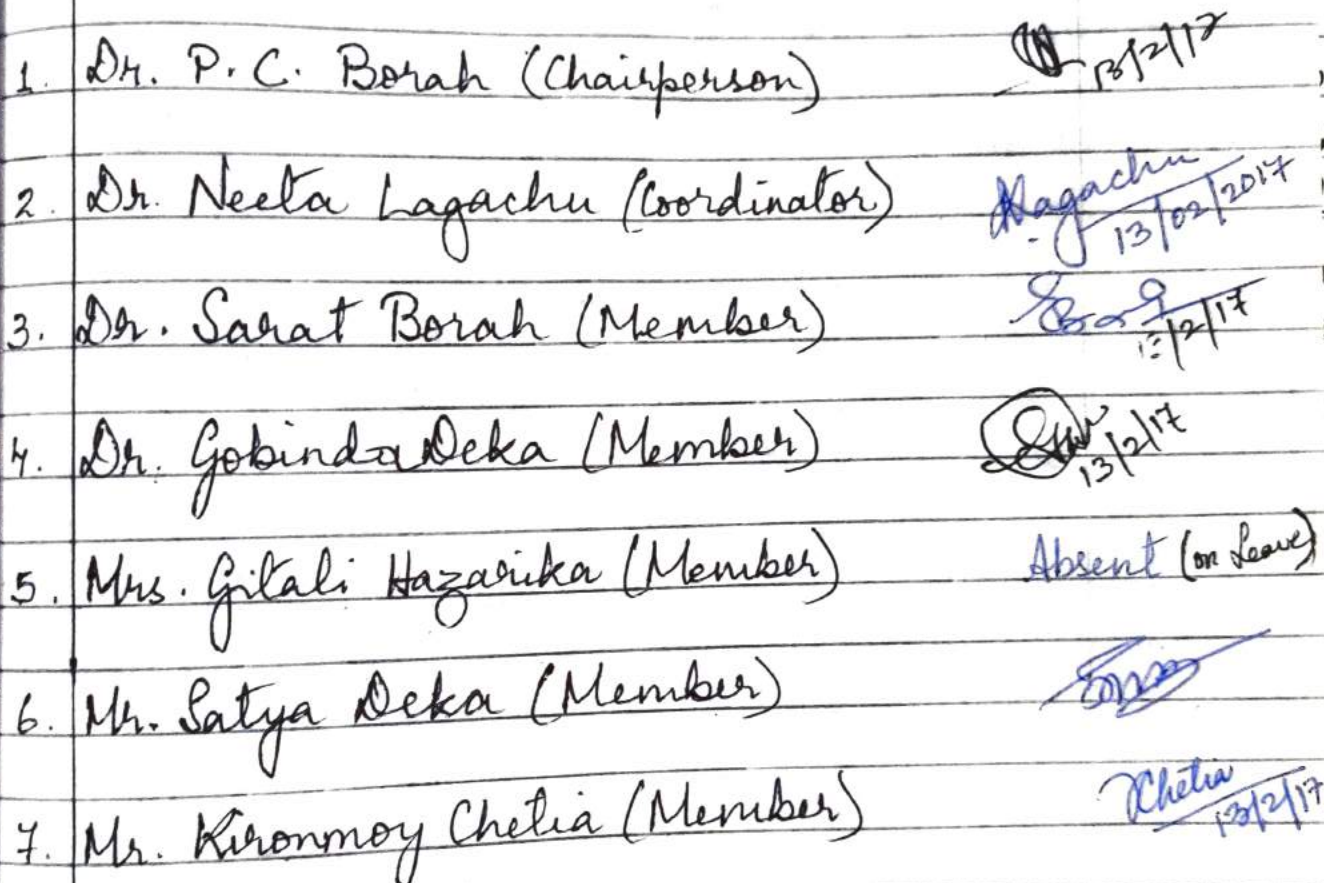 1. Dr. P. C. Borah (Chairperson) 13/2/17
2. Dr. Neeta Lagachu (Coordinator) Lagachu 13/02/2017
3. Dr. Sarat Borah (Member) /2/17
4. Dr. Gobinda Deka (Member) 13/2/17
5. Mrs. Gitali Hazarika (Member) Absent (on Leave)
6. Mr. Satya Deka (Member)
7. Mr. Kironmoy Chetia (Member) KChetia 13/2/17